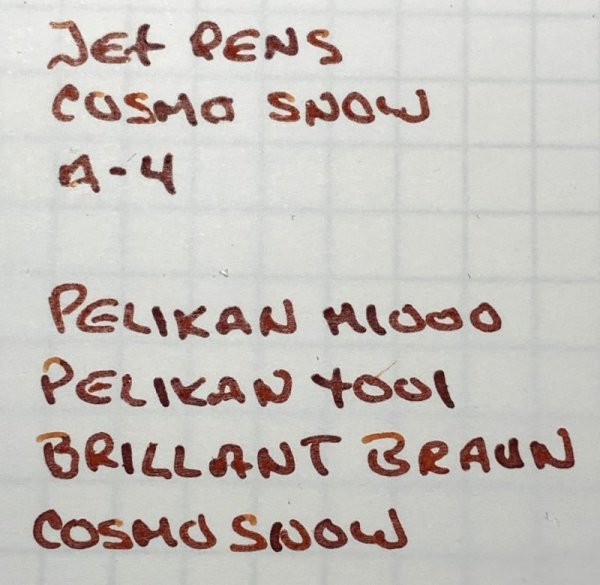 JET PENS
COSMO SNOW
A-4
PELIKAN M1000
PELIKAN 4001
BRILLANT BRAUN
COSMO SNOW